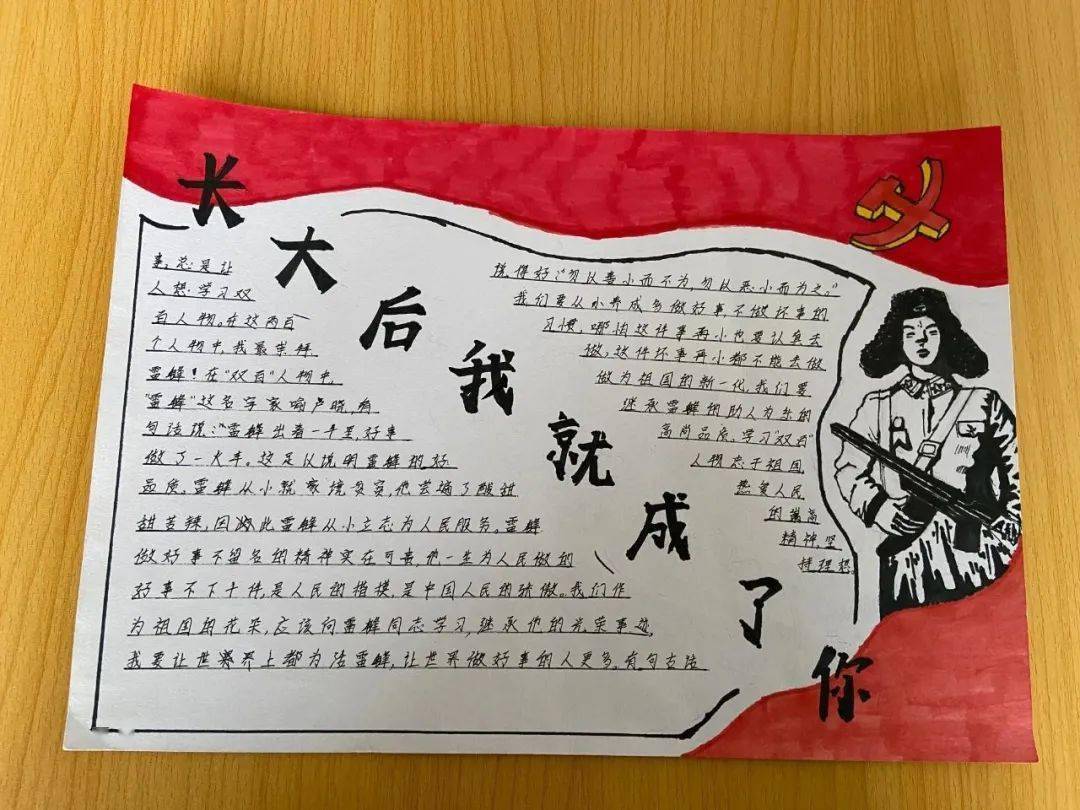 长大后我就成了你
事,总是让
人想学习双
百人物。在这两百
个人物中,我最崇拜
雷锋!在“双百”人物中,
“雷锋”这名字家喻户晓,有
句话说:“雷锋出差一千里,好事
做了一火车。这足以说明雷锋的好
品质。雷锋从小就家境贫寒,他尝遍了酸甜
甜苦辣,因此雷锋从小立志为人民服务。雷锋
做好事不留名的精神实在可贵他一生为人民做的
好事不下十件,是人民的楷模,是中国人民的骄傲。我们作
为祖国的花朵,应该向雷锋同志学习,继承他的光荣事迹,
我要让世界上都为活雷锋,让世界做好事的人更多,有句古话
说得好:“勿以善小而不为,勿以恶小而为之。”
我们要从小养成多做好事,不做坏事的
习惯,哪怕这件事再小也要认真去
做,这件坏事再小都不能去做
做为祖国的新一代,我们要
继承雷锋的助人为乐的
高尚品质,学习“双百”
人物忠于祖国
热爱人民
的崇高
精神,坚
持理想